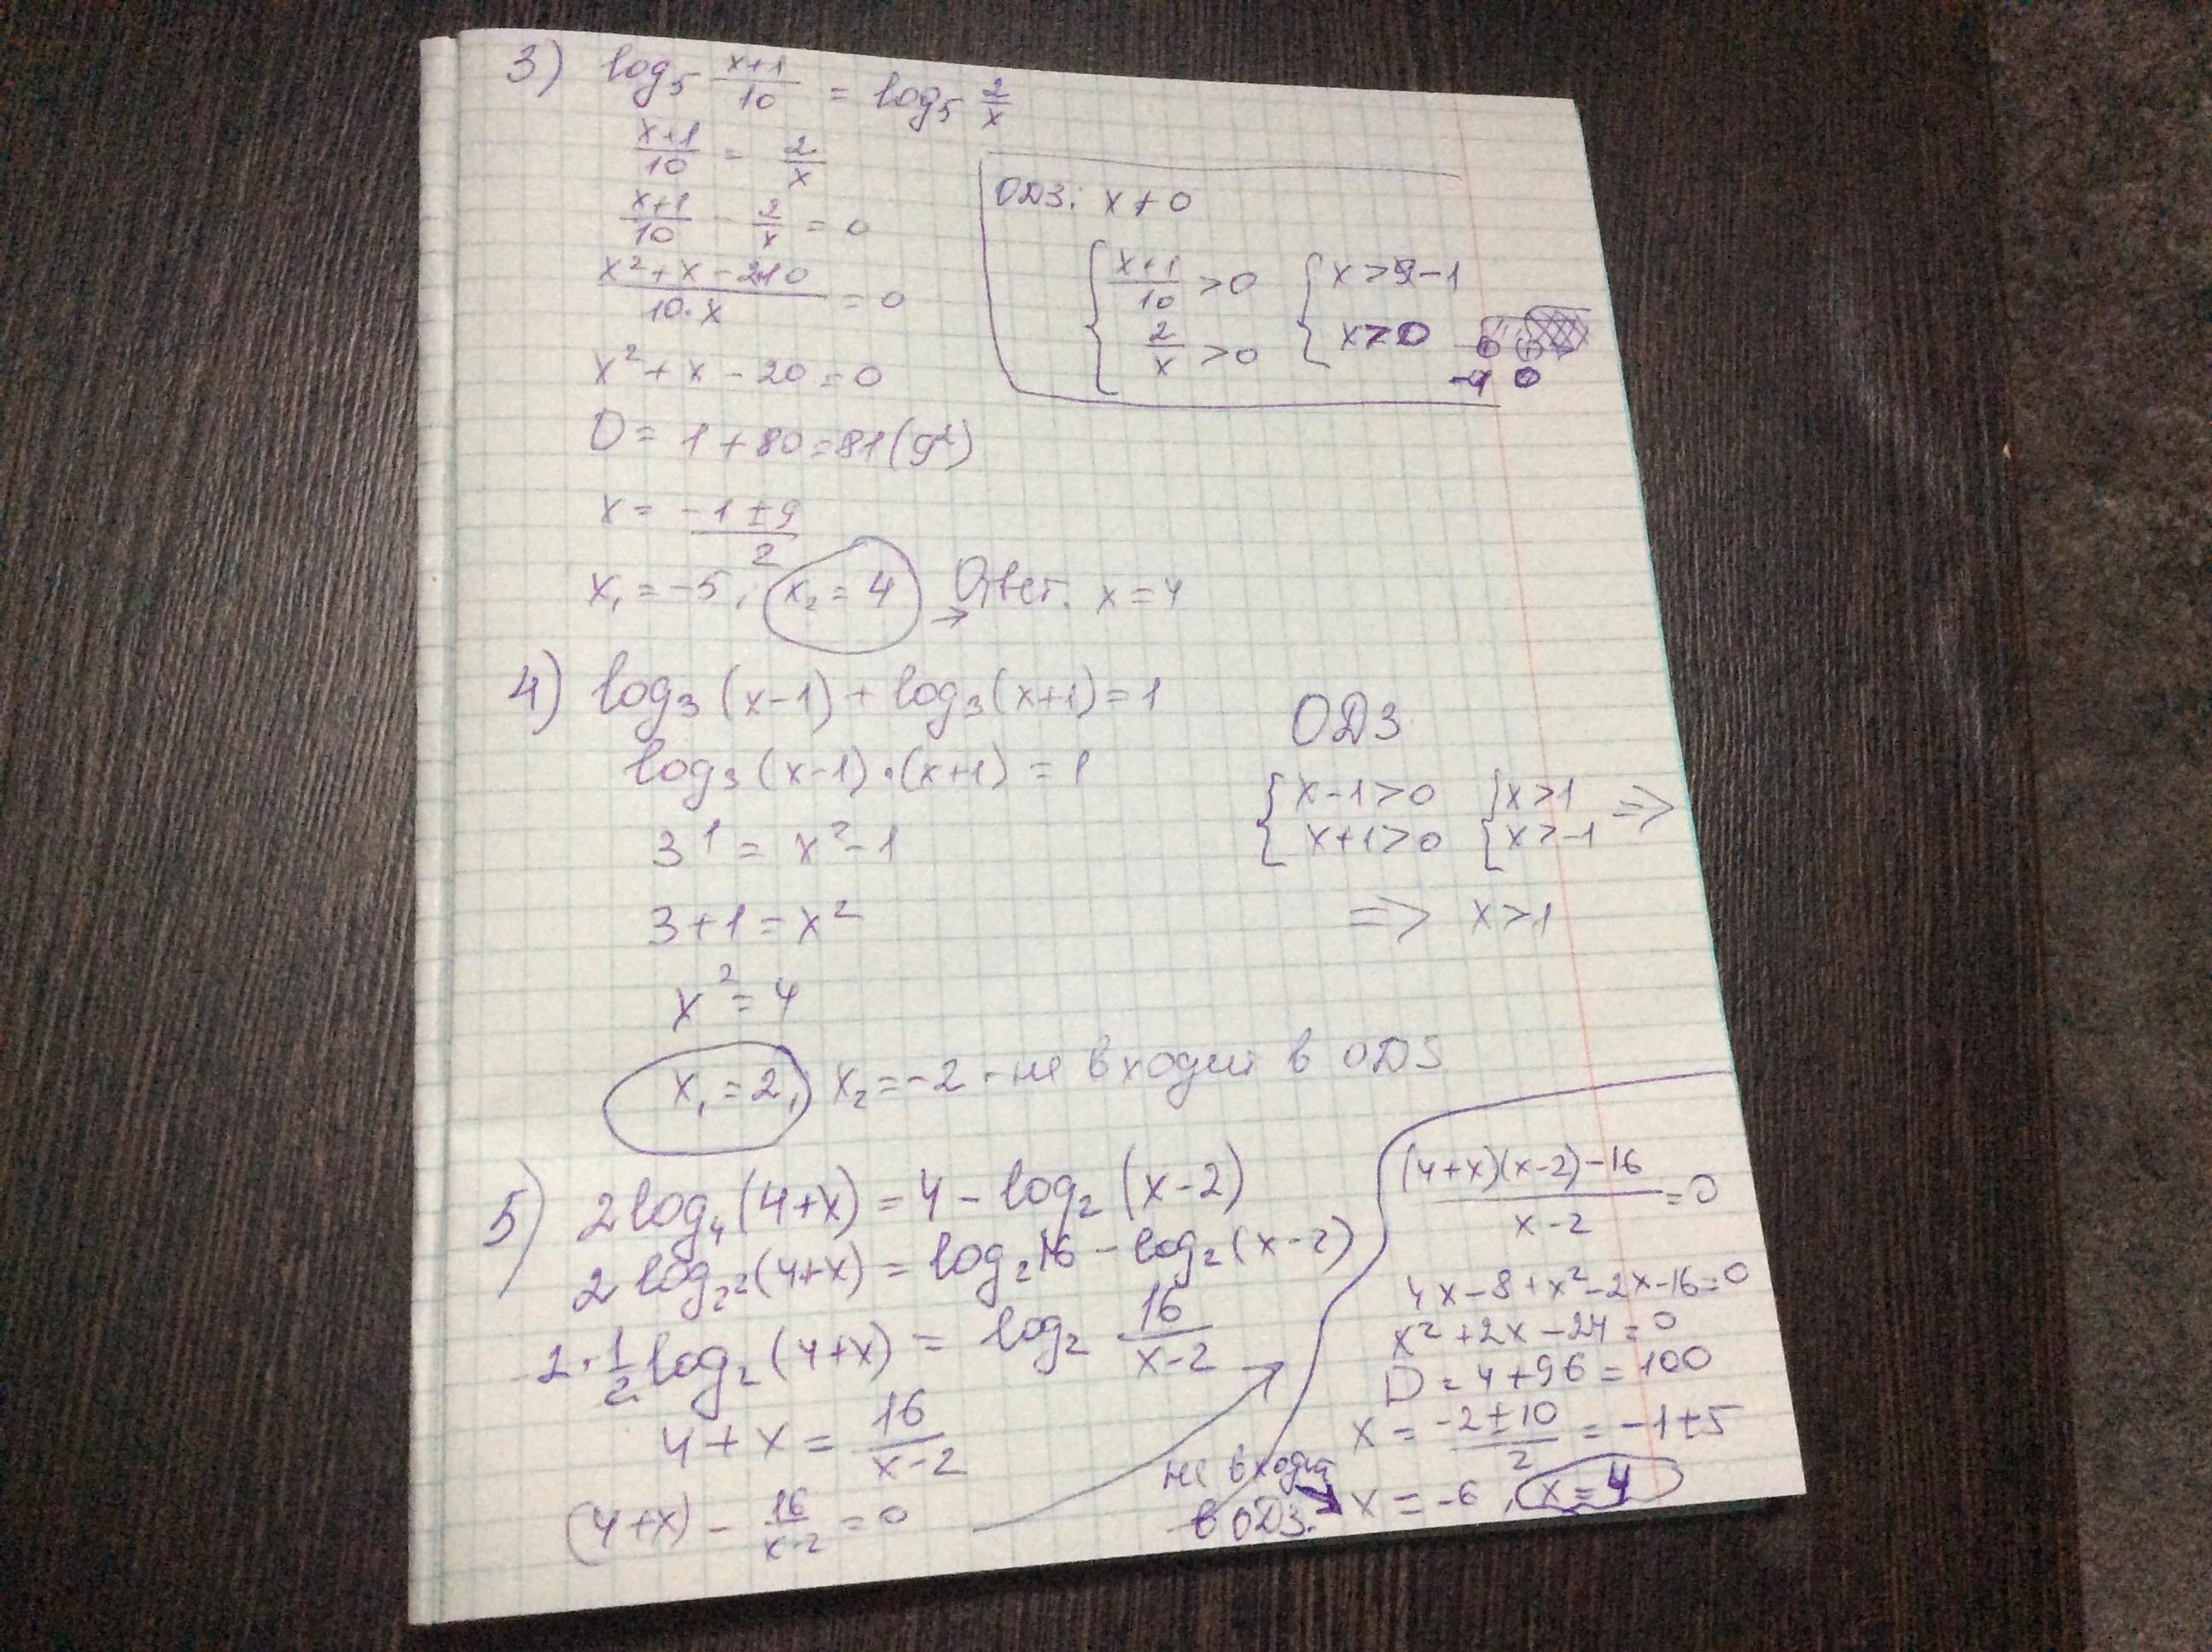 3) log₅ (x+1)/10 = log₅ 2/x
(x+1)/10 = 2/x
(x+1)/10 - 2/x = 0
(x²+x-2·10)/(10·x) = 0
x²+x-20=0
D = 1+80=81(9²)
x = (-1±9)/2
x₁=-5, x₂=4 → Ответ. x=4
ОДЗ: x≠0
{ (x+1)/10 >0 { x>-1
2/x >0 x>0
-1 0
4) log₃(x-1)+log₃(x+1)=1
log₃(x-1)·(x+1)=1
3¹ = x²-1
3+1=x²
x²=4
x₁=2, x₂=-2 - не входит в ОДЗ
ОДЗ
{ x-1>0 { x>1 ⇒
x+1>0 x>-1
⇒ x>1
5) 2log₄(4+x)=4-log₂(x-2)
2log₂²(4+x)=log₂16-log₂(x-2)
2·1/2 log₂(4+x)=log₂ 16/(x-2)
4+x=16/(x-2)
(4+x)-16/(x-2)=0
((4+x)(x-2)-16)/(x-2)=0
4x-8+x²-2x-16=0
x²+2x-24=0
D=4+96=100
x=(-2±10)/2=-1±5
не входит
в ОДЗ. x=-6, x=4